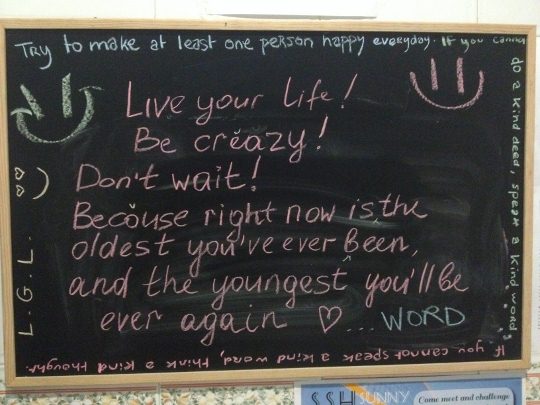 Try to make at least one person happy everyday. If you cannot
do a kind deed, speak a kind word.
If you cannot speak a kind word, think a kind thought.
L.G.L.
Live your life!
Be creazy!
Don't wait!
Becouse right now is the
oldest you've ever been,
and the youngest you'll be
ever again ♡ ... WORD
SSH SUNNY
Come meet and challenge